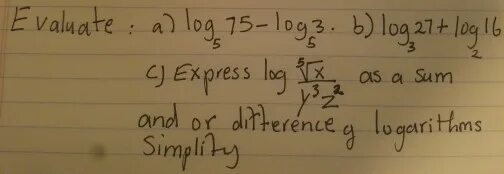 Evaluate : a) log₅ 75 - log₅ 3. b) log₃ 27 + log₂ 16
c) Express log ⁵√x / y³z² as a sum
and or difference of logarithms
Simplify